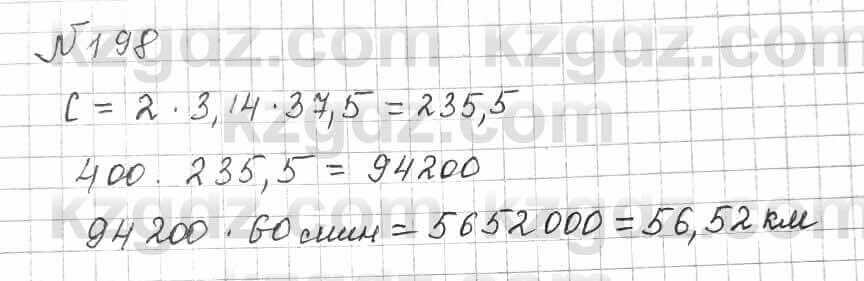 kzgdz.com kzgdz.com
№198
C = 2 · 3,14 · 37,5 = 235,5
kzgdz.com
400 · 235,5 = 94200
kzgdz.com kzgdz.com
94200 · 60 мин = 5652000 = 56,52 км